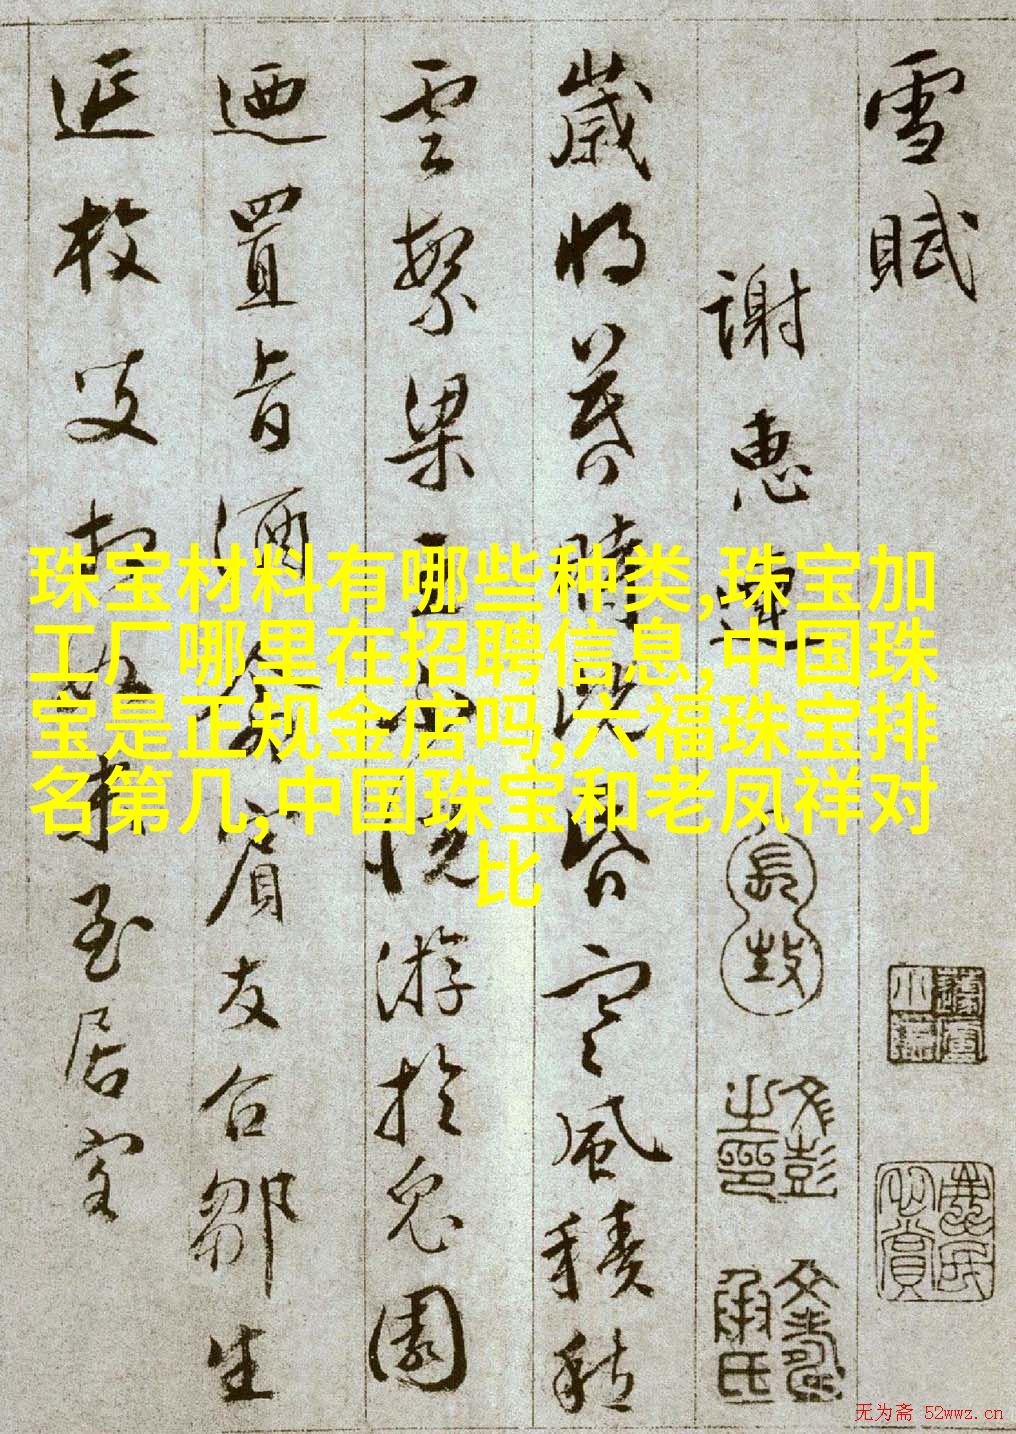 雪賦
謝惠連
歲將暮時既昏寒風積愁
雲繁梁王不悅游於兔園
迺置旨酒命賓友召鄒生
延枚叟相如末至居客
文彭之印
珠宝材料有哪些种类,珠宝加
工厂哪里在招聘信息,中国珠
宝是正规金店吗,六福珠宝排
名第几,中国珠宝和老凤祥对
比
无为斋 52wwz.cn